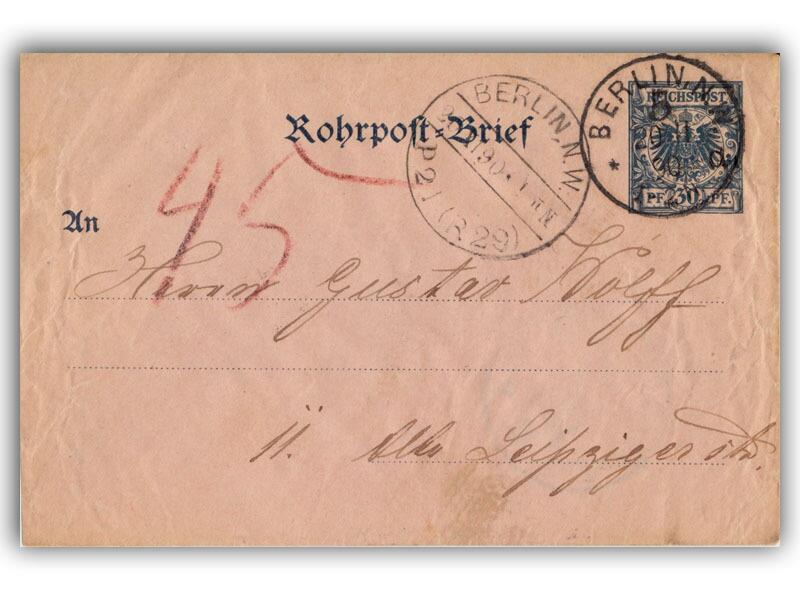 Rohrpost=Brief
BERLIN, N.W.
P21 (R.29)
BERLIN, N.
REICHSPOST
PF. 30 PF.
45
An
Herrn Gustav Wolff
11. Alte Leipzigerstr.